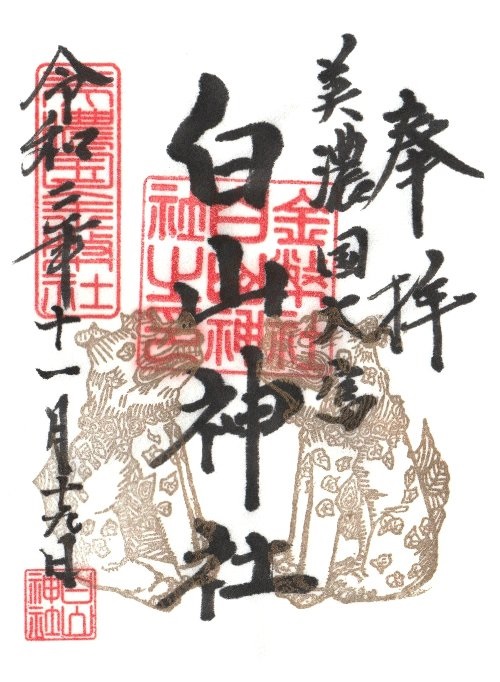 奉拝
美濃国大
白山神社
金幣社
白山神
社之印
令和二年十一月十九日
白山
神社